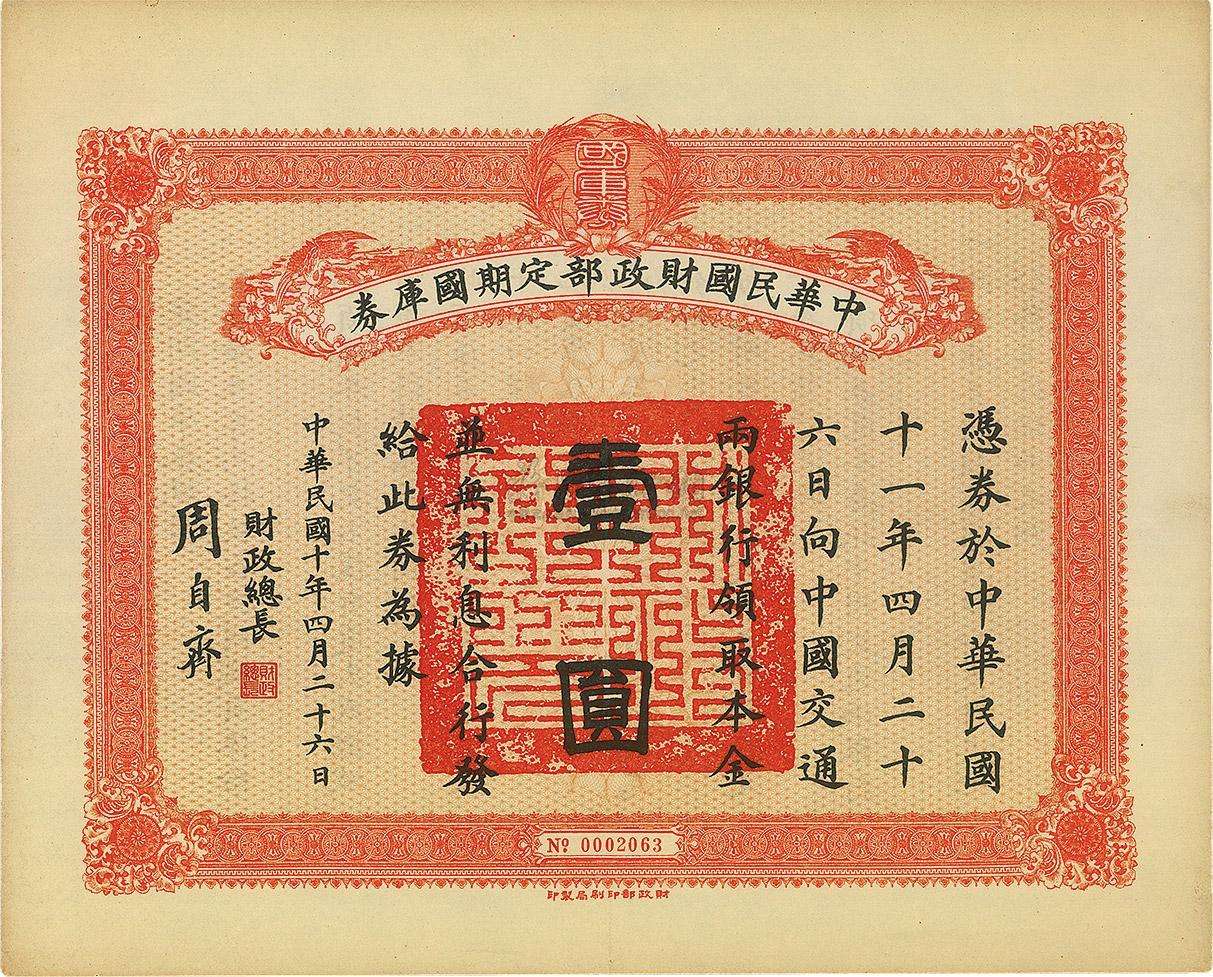 國庫券
中華民國財政部定期國庫券
憑券於中華民國
十一年四月二十
六日向中國交通
兩銀行領取本金
壹圓
並無利息合行發
給此券為據
中華民國十年四月二十六日
財政總長
周自齊
No 0002063
財政部印刷局製印